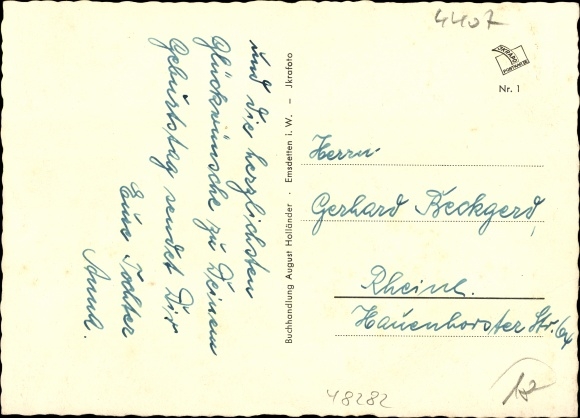 und die herzlichsten
Glückwünsche zu Deinem
Geburtstag sendet Dir
Eure Tochter
Buchhandlung August Holländer · Emsdetten i. W. – Jkrafoto
4407
Nr. 1
Herrn
Gerhard Beckgerd,
Rheine.
Hauenhorster Str.
48282
12